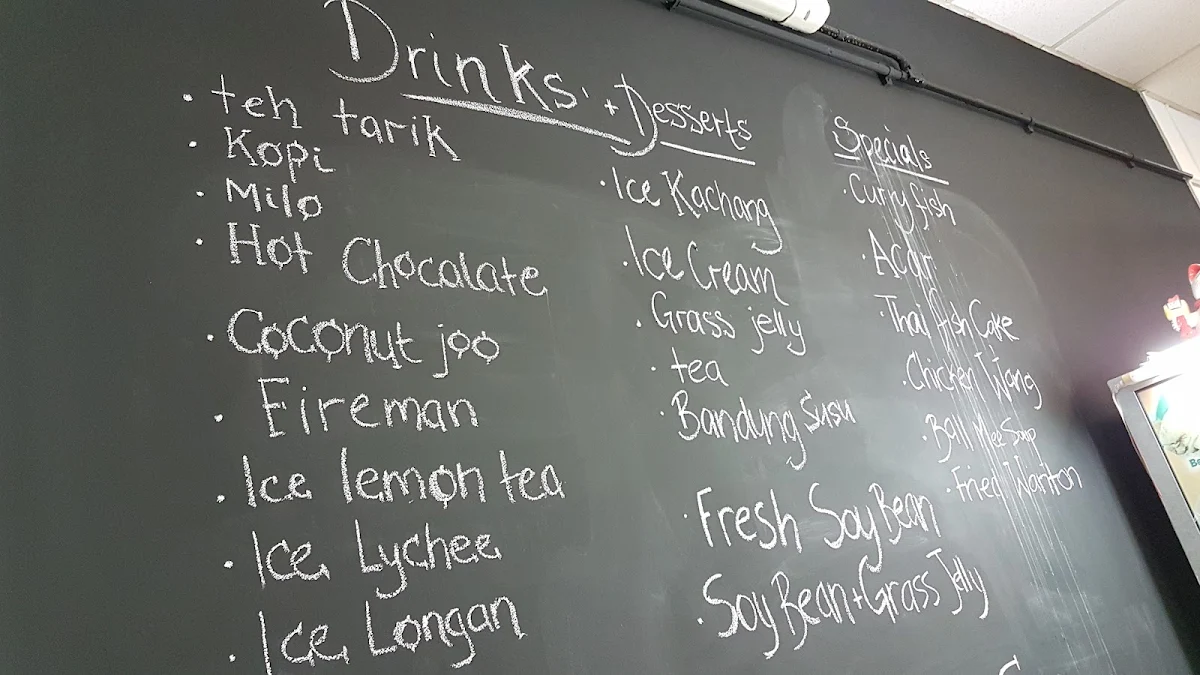 Drinks + Desserts
· teh tarik
· Kopi
· Milo
· Hot Chocolate
· Coconut joo
· Fireman
· Ice lemon tea
· Ice Lychee
· Ice Longan
· Ice Kachang
· Ice Cream
· Grass jelly
· tea
· Bandung Susu
· Fresh Soy Bean
· Soy Bean + Grass Jelly
Specials
· Curry fish
· Acar
· Thai fish Cake
· Chicken Wang
· Ball Mee Soup
· Fried Wanton